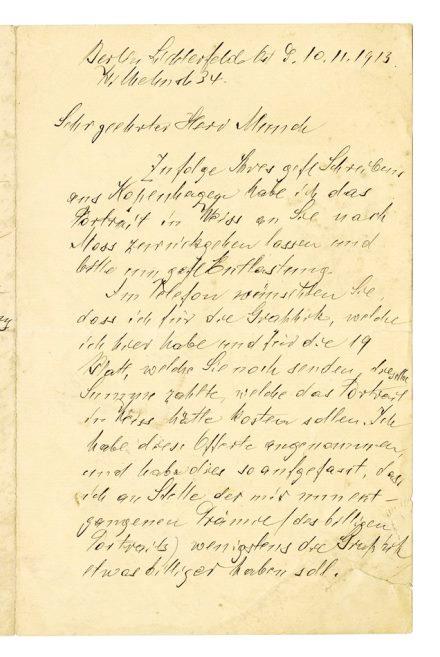 Berlin Lichterfeld d. 10.11.1913
34.
Sehr geehrter Herr Munch
Zufolge Ihres gefl Schreibens
aus Kopenhagen habe ich das
Portrait in Weiss an Sie nach
Moss zurückgehen lassen und
bitte um gefl Entlastung.
Im Telefon wünschten Sie,
dass ich für die Graphik, welche
ich hier habe und für die 19
Blatt, welche Sie noch senden, dieselbe
Summe zahlte, welche das Portrait
in Weiss hätte kosten sollen. Ich
habe diese Offerte angenommen,
und habe dies so aufgefasst, dass
ich an Stelle der mir nun ent-
gangenen Prämie (des billigen
Portraits) wenigstens die Graphik
etwas billiger haben soll.